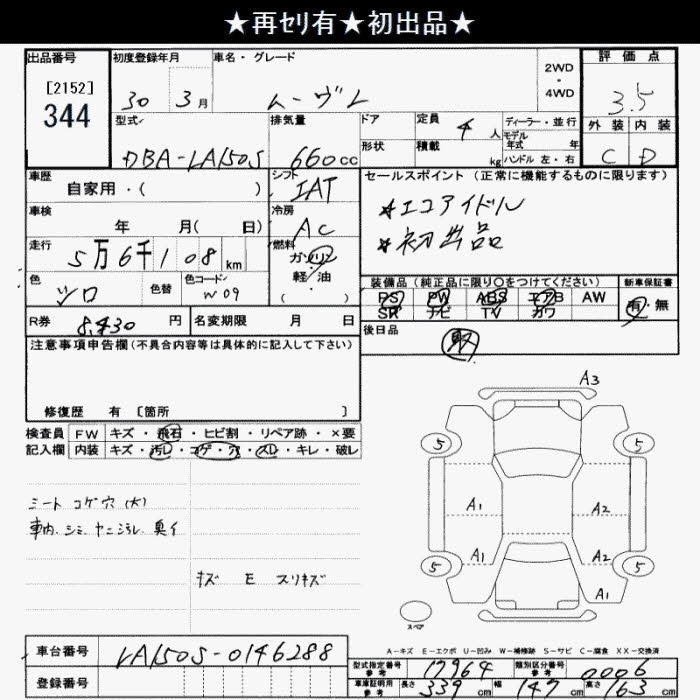 ★再セリ有★初出品★
出品番号 初度登録年月 車名・グレード 2WD・4WD 評価点
[2152] 30 3月 ムーヴL 3.5
344 外装 内装
型式 排気量 ドア 定員 4人 ディーラー・並行
モデル年式 年
DBA-LA150S 660cc 形状 積載 kg ハンドル 左・右 C D
車歴 シフト セールスポイント（正常に機能するものに限ります）
自家用・( ) IAT ★エコアイドル
車検 冷房 ★初出品
年 月( 日) AC
走行 燃料
5万6千108km ガソリン
軽・油
( )
色 シロ 色替 色コード W09 装備品（純正品に限り〇をつけてください） 新車保証書
PS PW ABS エアB AW 有・無
SR ナビ TV カワ
R券 8,430円 名変期限 月 日 後日品
注意事項申告欄(不具合内容等は具体的に記入して下さい)
修復歴 有 〔箇所 〕
検査員 FW キズ・飛石・ヒビ割・リペア跡・×要
記入欄 内装 キズ・汚れ・コゲ・穴・スレ・キレ・破レ
シート コゲ穴(大)
車内.シミ.ヤニ汚レ.臭イ
キズ E スリキズ
A3
5 5
A1 A2
A1 A2
5 5
A1
スペア
A-キズ E-エクボ U-凹み W-補修跡 S-サビ C-腐食 XX-交換済
車台番号 LA150S-0146288
登録番号
型式指定番号 参考 17964 類別区分番号 参考 0006
車庫証明用 参考 長さ 339cm 幅 147cm 高さ 163cm